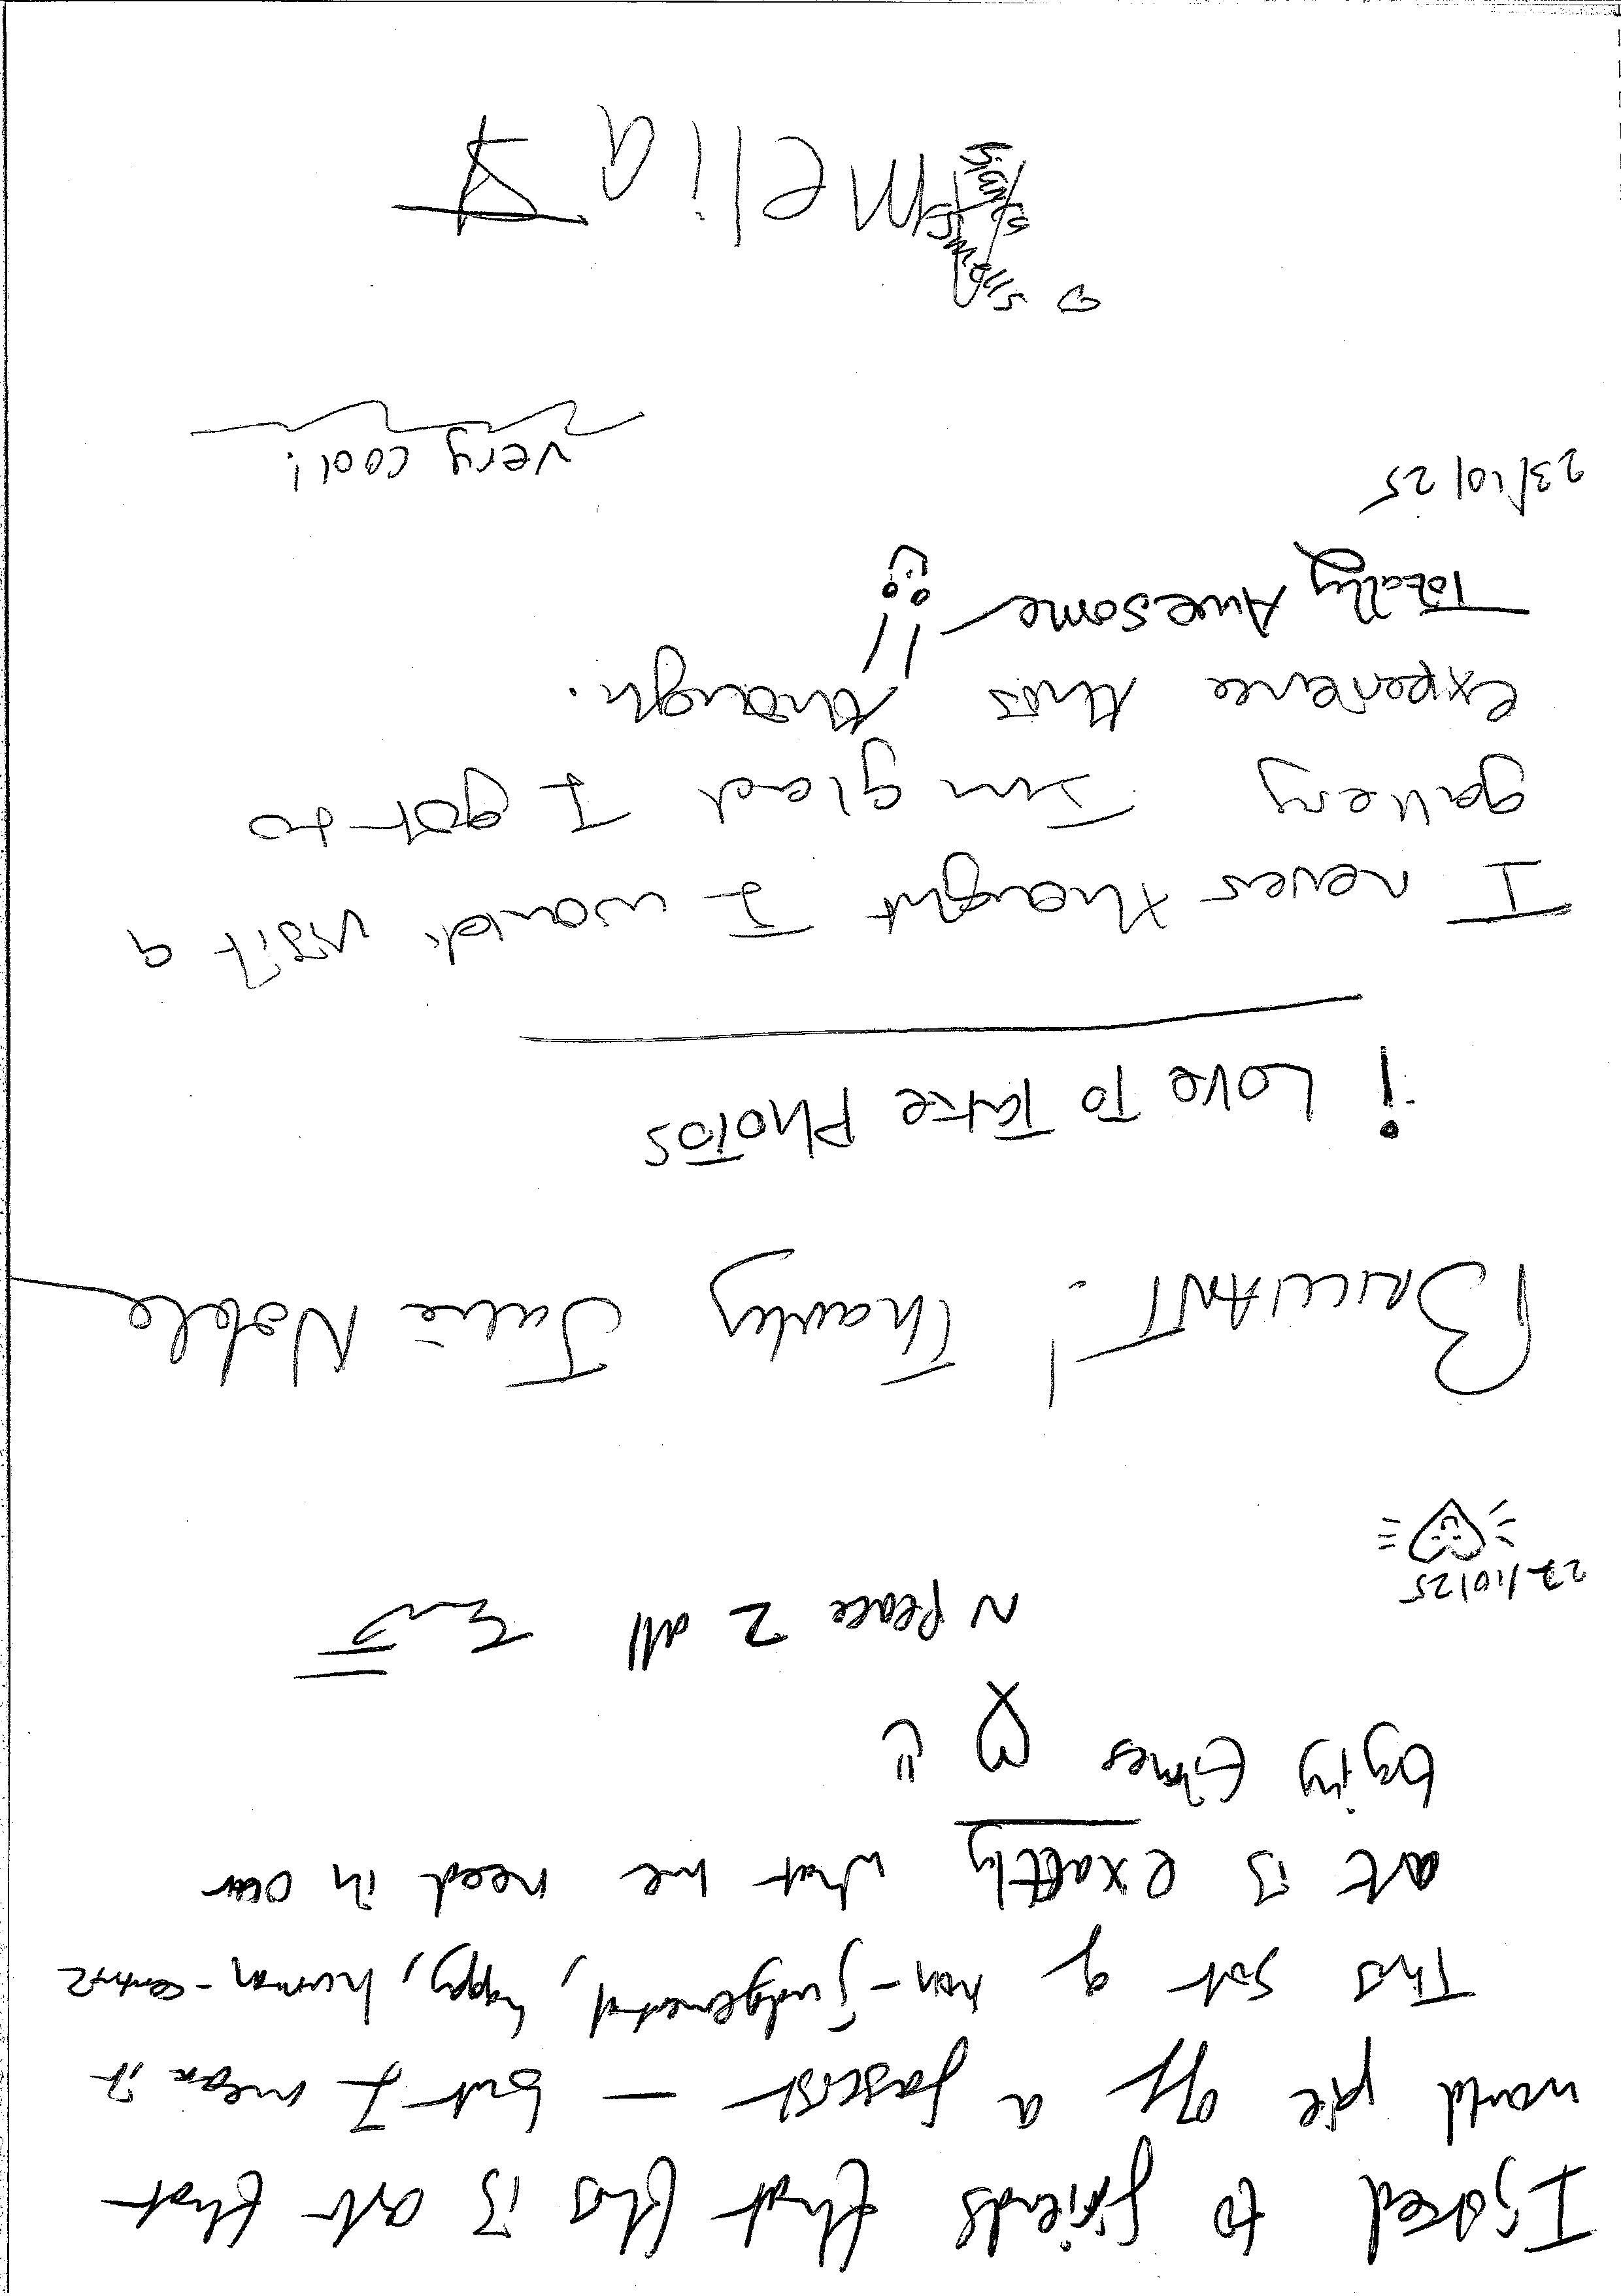 I joked to friends that this is art that
would off a fascist — but I mean it
This sort of non-judgemental, happy, human-centric
art is exactly what we need in our
times
N Peace 2 all
27/10/25
BRILLIANT! Thank you Julie Noble
i LOVE TO TAKE PHOTOS
I never thought I would visit a
gallery I'm glad I got to
experience this though.
Totally Awesome !!
23/10/25
very cool!
smells
Amelia